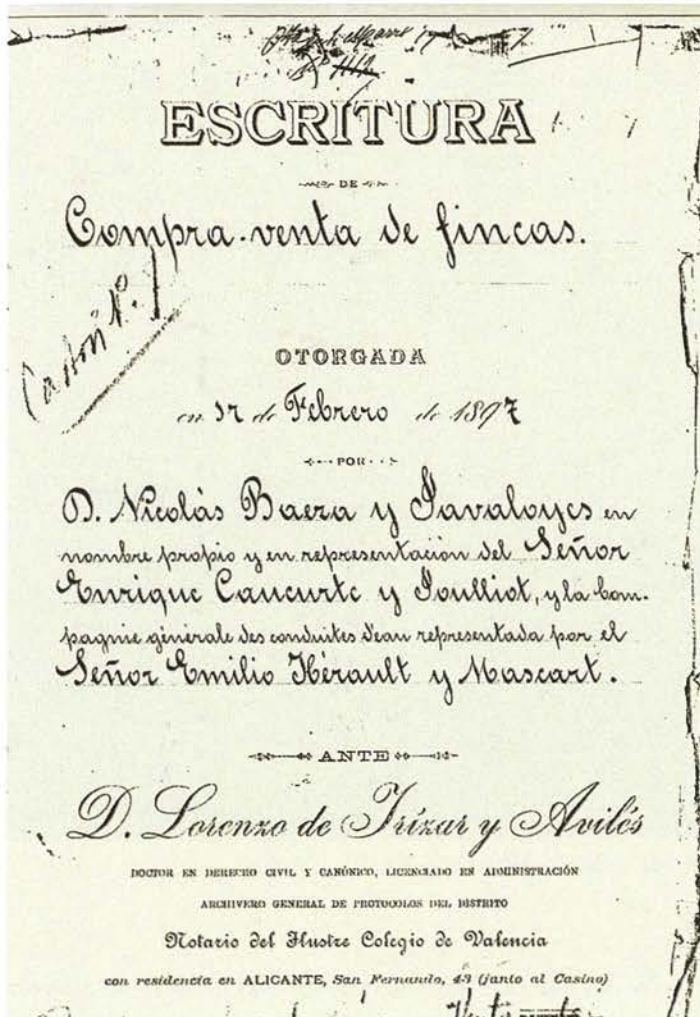 ESCRITURA
DE
Compra-venta de fincas.
Cartón nº. 1
OTORGADA
en 17 de Febrero de 1897
POR
D. Nicolás Baeza y Javaloyes en
nombre propio y en representación del Señor
Enrique Caucurte y Joulliot, y la Com-
pagnie génerale des conduites d'eau representada por el
Señor Emilio Hérault y Mascart.
ANTE
D. Lorenzo de Irízar y Avilés
DOCTOR EN DERECHO CIVIL Y CANÓNICO, LICENCIADO EN ADMINISTRACIÓN
ARCHIVERO GENERAL DE PROTOCOLOS DEL DISTRITO
Notario del Ilustre Colegio de Valencia
con residencia en ALICANTE, San Fernando, 43 (junto al Casino)